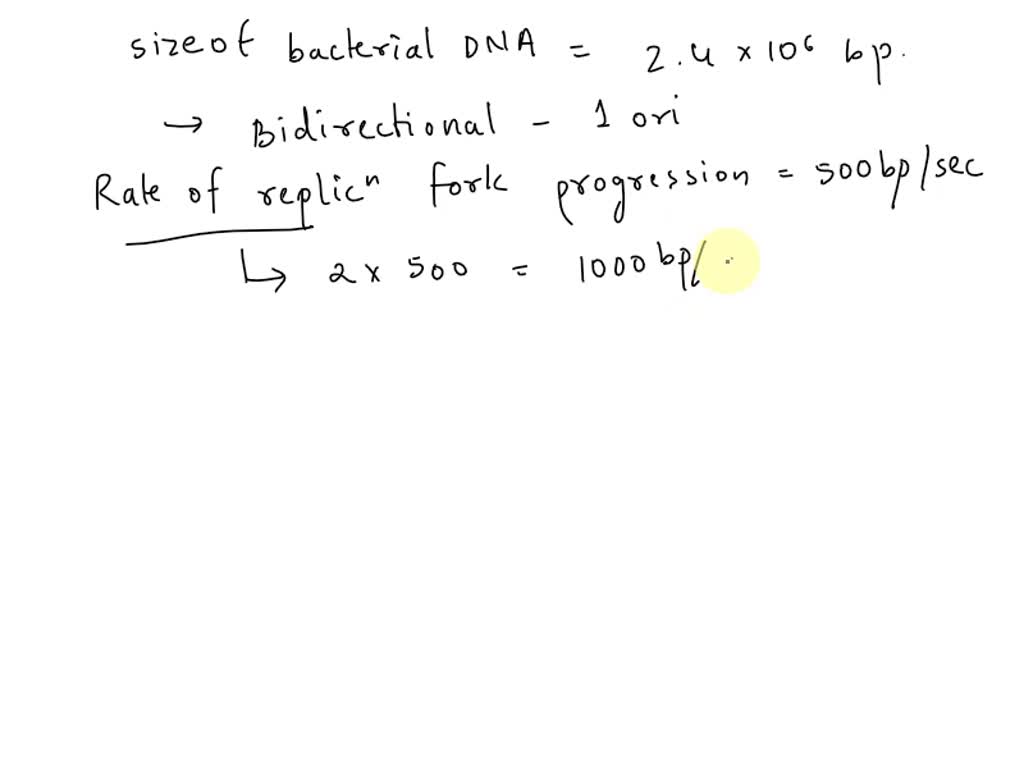 size of bacterial DNA = 2.4 × 10⁶ bp.
→ Bidirectional - 1 ori
Rate of replicⁿ fork progression = 500bp/sec
↳ 2 × 500 = 1000 bp/